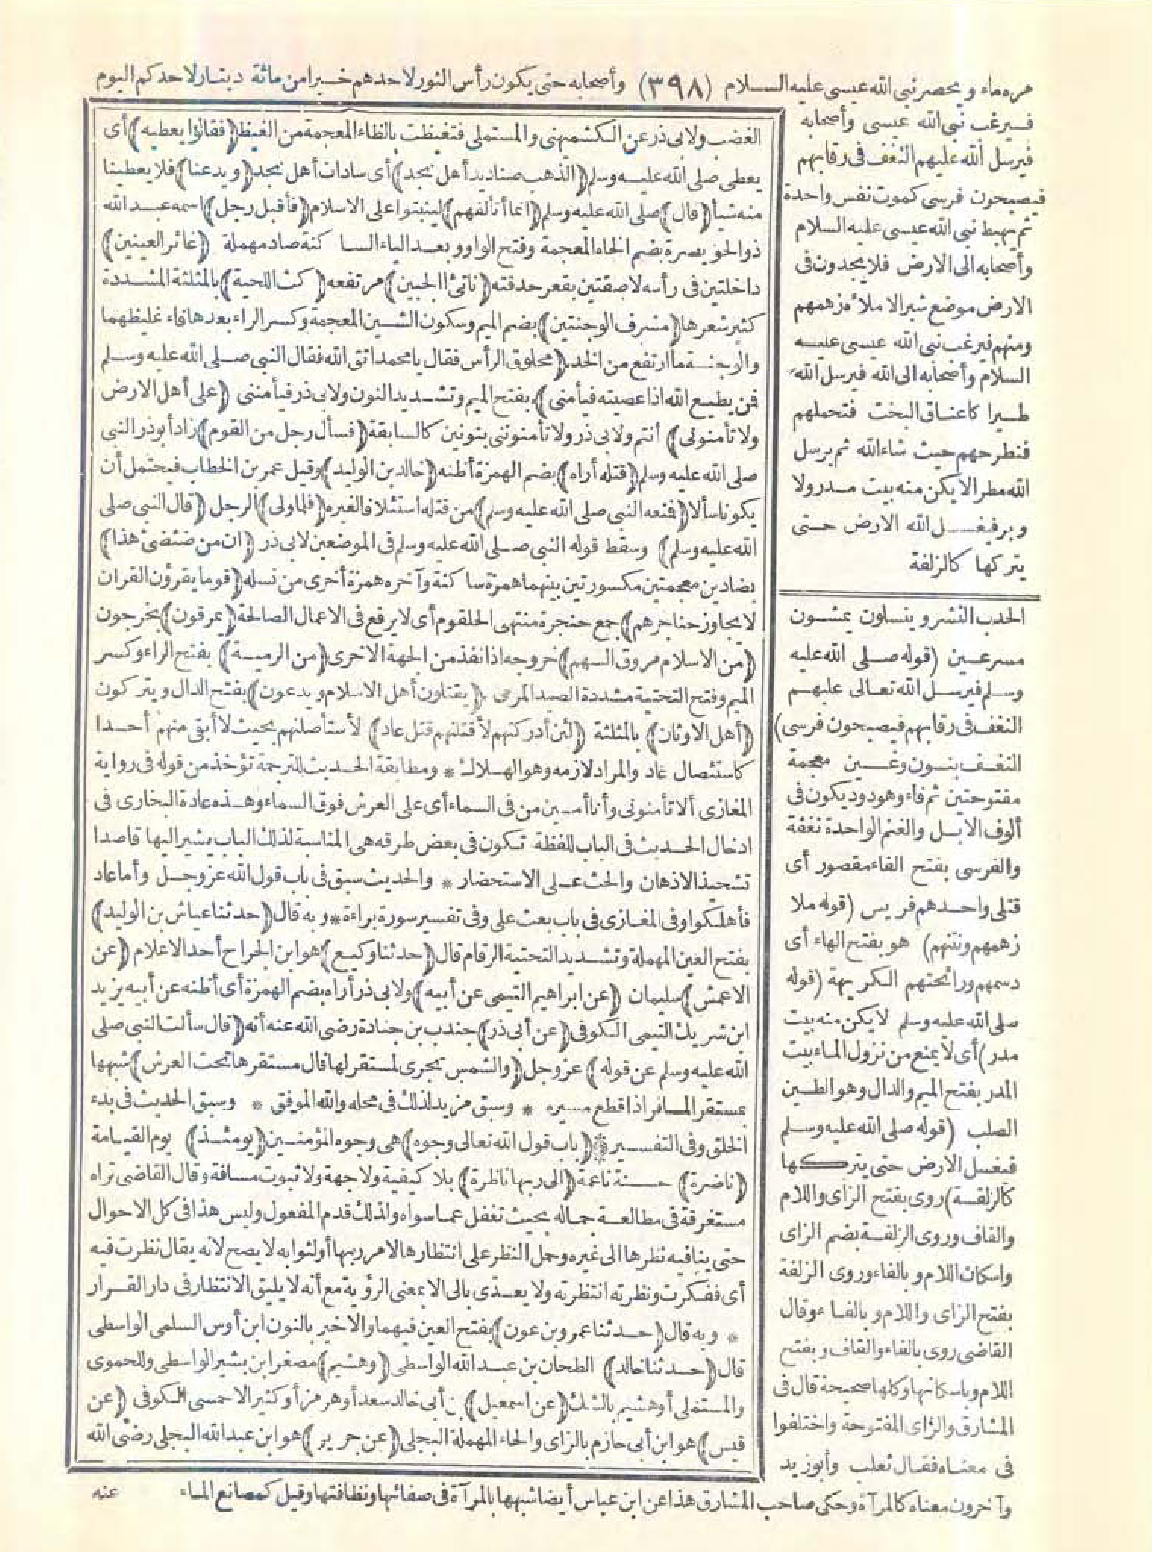 هر مماء ويحصر نبي الله عيسى عليه السلام (٣٩٨) وأصحابه حتى يكون رأس الثور لاحدهم خيرا من مائة دينار لاحدكم اليوم
فيرغب نبي الله عيسى وأصحابه
فيرسل الله عليهم النغف في رقابهم
فيصبحون فرسى كموت نفس واحدة
ثم يهبط نبي الله عيسى عليه السلام
وأصحابه الى الارض فلا يجدون في
الارض موضع شبر الا ملأه زهمهم
ونتنهم فيرغب نبي الله عيسى عليه
السلام وأصحابه الى الله فيرسل الله
طيرا كاعناق البخت فتحملهم
فتطرحهم حيث شاء الله ثم يرسل
الله مطرا لا يكن منه بيت مدر ولا
وبر فيغسل الله الارض حتى
يتركها كالزلفة
الحدب النشز وينسلون يمشون
مسرعين (قوله صلى الله عليه
وسلم فيرسل الله تعالى عليهم
النغف في رقابهم فيصبحون فرسى)
النغف بنون وغين معجمة
مفتوحتين ثم فاء وهو دود يكون في
أنوف الابل والغنم الواحدة نغفة
والفرسى بفتح الفاء مقصور أى
قتلى واحدهم فريس (قوله ملأ
زهمهم ونتنهم) هو بفتح الهاء أى
دسمهم ورائحتهم الكريهة (قوله
صلى الله عليه وسلم لا يكن منه بيت
مدر) أى لا يمنع من نزول الماء بيت
المدر بفتح الميم والدال وهو الطين
الصلب (قوله صلى الله عليه وسلم
فيغسل الارض حتى يتركها
كالزلقة) روى بفتح الزاى واللام
والقاف وروى الزلفة بضم الزاى
واسكان اللام وبالفاء وروى الزلفة
بفتح الزاى واللام وبالفاء وقال
القاضى روى بالفاء والقاف وبفتح
اللام وباسكانها وكلها صحيحة قال في
المشارق والزاى المفتوحة واختلفوا
في معناه فقال ثعلب وأبو زيد
وآخرون معناه كالمرآة وحكى صاحب المشارق هذا عن ابن عباس أيضا شبهها بالمرآة في صفائها ونظافتها وقيل كمصانع الماء
الغضب ولابي ذر عن الكشميهني والمستملي فتغيظت بالظاء المعجمة من الغيظ (فقالوا يعطيه) أى
يعطى صلى الله عليه وسلم (الذهب صناديد أهل نجد) أى سادات أهل نجد (ويدعنا) فلا يعطينا
منه شيأ (قال) صلى الله عليه وسلم (انما أتألفهم) ليثبتوا على الاسلام (فأقبل رجل) اسمه عبد الله
ذو الخويصرة بضم الخاء المعجمة وفتح الواو وبعد الياء الساكنة صاد مهملة (غائر العينين)
داخلتين في رأسه لاصقتين بقعر حدقته (ناتئ الجبين) مرتفعه (كث اللحية) بالمثلثة المشددة
كثير شعرها (مشرف الوجنتين) بضم الميم وسكون الشين المعجمة وكسر الراء بعدها فاء غليظهما
والوجنة ما ارتفع من الخد (محلوق الرأس فقال يا محمد اتق الله فقال النبي صلى الله عليه وسلم
فمن يطيع الله اذا عصيته فيأمنى) بفتح الميم وتشديد النون ولابي ذر فيأمننى (على أهل الارض
ولا تأمنونى) أنتم ولابي ذر ولا تأمنوننى بنونين كالسابقة (فسأل رجل من القوم) زاد أبو ذر النبي
صلى الله عليه وسلم (قتله أراه) بضم الهمزة أظنه (خالد بن الوليد) وقيل عمر بن الخطاب فيحتمل أن
يكونا سألا (فمنعه النبي صلى الله عليه وسلم) من قتله استئلافا لغيره (فلما ولى) الرجل (قال النبي صلى
الله عليه وسلم) وسقط قوله النبي صلى الله عليه وسلم في الموضعين لابي ذر (ان من ضئضئ هذا)
بضادين معجمتين مكسورتين بينهما همزة ساكنة وآخره همزة أخرى من نسله (قوما يقرؤن القرآن
لا يجاوز حناجرهم) جمع حنجرة منتهى الحلقوم أى لا يرفع في الاعمال الصالحة (يمرقون) يخرجون
(من الاسلام مروق السهم) خروجه اذا نفذ من الجهة الاخرى (من الرمية) بفتح الراء وكسر
الميم وفتح التحتية مشددة الصيد المرمى (يقتلون أهل الاسلام ويدعون) بفتح الدال ويتركون
(أهل الاوثان) بالمثلثة (لئن أدركتهم لأقتلنهم قتل عاد) لأستأصلنهم بحيث لا أبقى منهم أحدا
كاستئصال عاد والمراد لازمه وهو الهلاك * ومطابقة الحديث للترجمة تؤخذ من قوله في رواية
المغازى ألا تأمنونى وأنا أمين من في السماء أى على العرش فوق السماء وهذه عادة البخارى في
ادخال الحديث في الباب للفظة تكون في بعض طرقه هى المناسبة لذلك الباب يشير اليها قاصدا
تشحيذ الاذهان والحث على الاستحضار * والحديث سبق في باب قول الله عز وجل وأما عاد
فأهلكوا وفي المغازى في باب بعث على وفي تفسير سورة براءة * وبه قال (حدثنا عياش بن الوليد)
بفتح العين المهملة وتشديد التحتية الرقام قال (حدثنا وكيع) هو ابن الجراح أحد الاعلام (عن
الاعمش) سليمان (عن ابراهيم التيمى عن أبيه) ولابي ذر أراه بضم الهمزة أى أظنه عن أبيه يزيد
ابن شريك التيمى الكوفى (عن أبى ذر) جندب بن جنادة رضى الله عنه أنه (قال سألت النبي صلى
الله عليه وسلم عن قوله) عز وجل (والشمس تجرى لمستقر لها قال مستقرها تحت العرش) شبهها
بمستقر المسافر اذا قطع مسيره * وسبق مزيد لذلك في محله والله الموفق * وسبق الحديث في بدء
الخلق وفي التفسير * (باب قول الله تعالى وجوه) هى وجوه المؤمنين (يومئذ) يوم القيامة
(ناضرة) حسنة ناعمة (الى ربها ناظرة) بلا كيفية ولا جهة ولا ثبوت مسافة وقال القاضى تراه
مستغرقة في مطالعة جماله بحيث تغفل عما سواه ولذلك قدم المفعول وليس هذا في كل الاحوال
حتى ينافيه نظرها الى غيره وحمل النظر على انتظارها لامر ربها أولثوابه لا يصح لانه يقال نظرت فيه
أى تفكرت ونظرته انتظرته ولا يعدى بالى الا بمعنى الرؤية مع أنه لا يليق الانتظار في دار القرار
* وبه قال (حدثنا عمرو بن عون) بفتح العين فيهما والاخير بالنون ابن أوس السلمى الواسطى
قال (حدثنا خالد) الطحان بن عبد الله الواسطى (وهشيم) مصغرا ابن بشير الواسطى وللحموى
والمستملي أو هشيم بالشك (عن اسمعيل) بن أبى خالد سعد أو هرمز أو كثير الاحمسى الكوفى (عن
قيس) هو ابن أبى حازم بالزاى والحاء المهملة البجلى (عن جرير) هو ابن عبد الله البجلى رضى الله
عنه